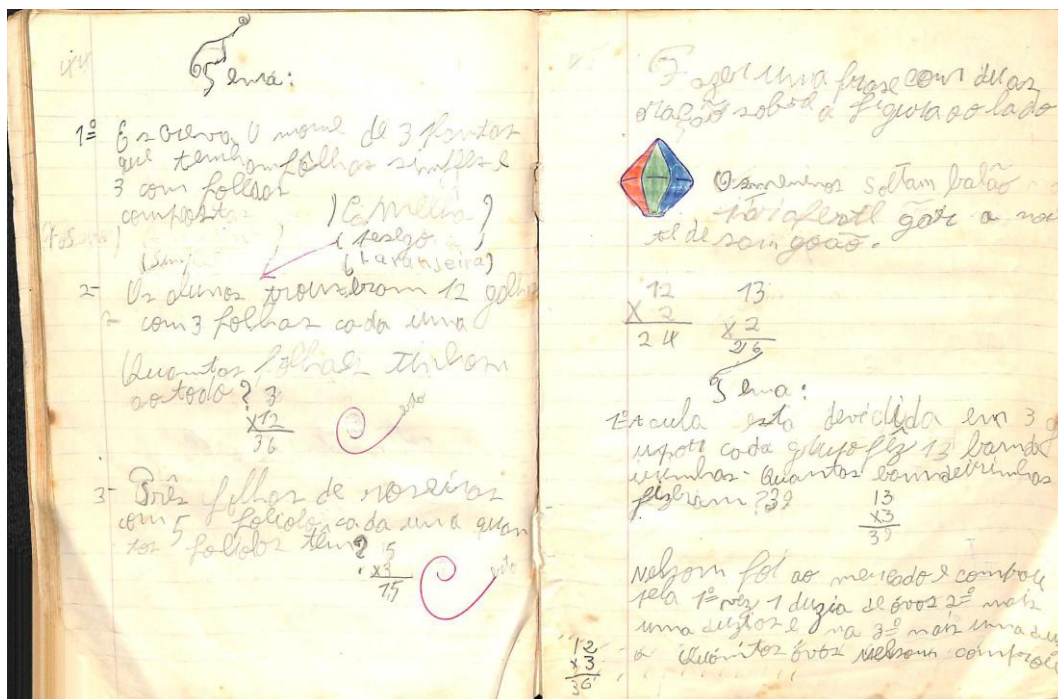 Tema:
1º Escreva o nome de 3 plantas
que tenham folhas simples e
3 com folhas
compostas
(Camélia)
(pesego)
(Laranjeira)
2- Os alunos trouxeram 12 galhos
com 3 folhas cada uma
Quantas folhas tinham
ao todo? 3
x12
36
esto
3- Três folhas de roseiras
com 5 foliolo cada uma quan
tos foliolos tem? 5
x3
15
esto
Fazer uma frase com duas
oração sobre a figura ao lado
Os meninos soltam balão
gár a noi
te de som goão.
12 13
X 2 x2
24 26
Tema:
1º A aula esta devidida em 3
cada grupo fêz 13 bande
irinhas. Quantas bamdeirinhas
fizeram? 39
13
x3
39
Nelsom foi ao mercado e comprou
pela 1º vêz 1 duzia de óvos 2º mais
uma duzia e na 3º mais uma duzi
a Quantos óvos nelsom comprou
12
x 3
36